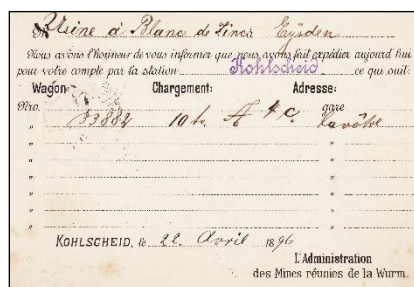 M Usine à Blanc de Zinc à Eysden
Nous avons l'honneur de vous informer que nous avons fait expédier aujourd'hui
pour votre compte par la station Kohlscheid ce qui suit:
Wagon: Chargement: Adresse:
Nro. gare
" 33882 10 to. A + C " la vôtre
" " "
" " "
" " "
" " "
" " "
KOHLSCHEID, le 22 Avril 1896
L'Administration
des Mines réunies de la Wurm.